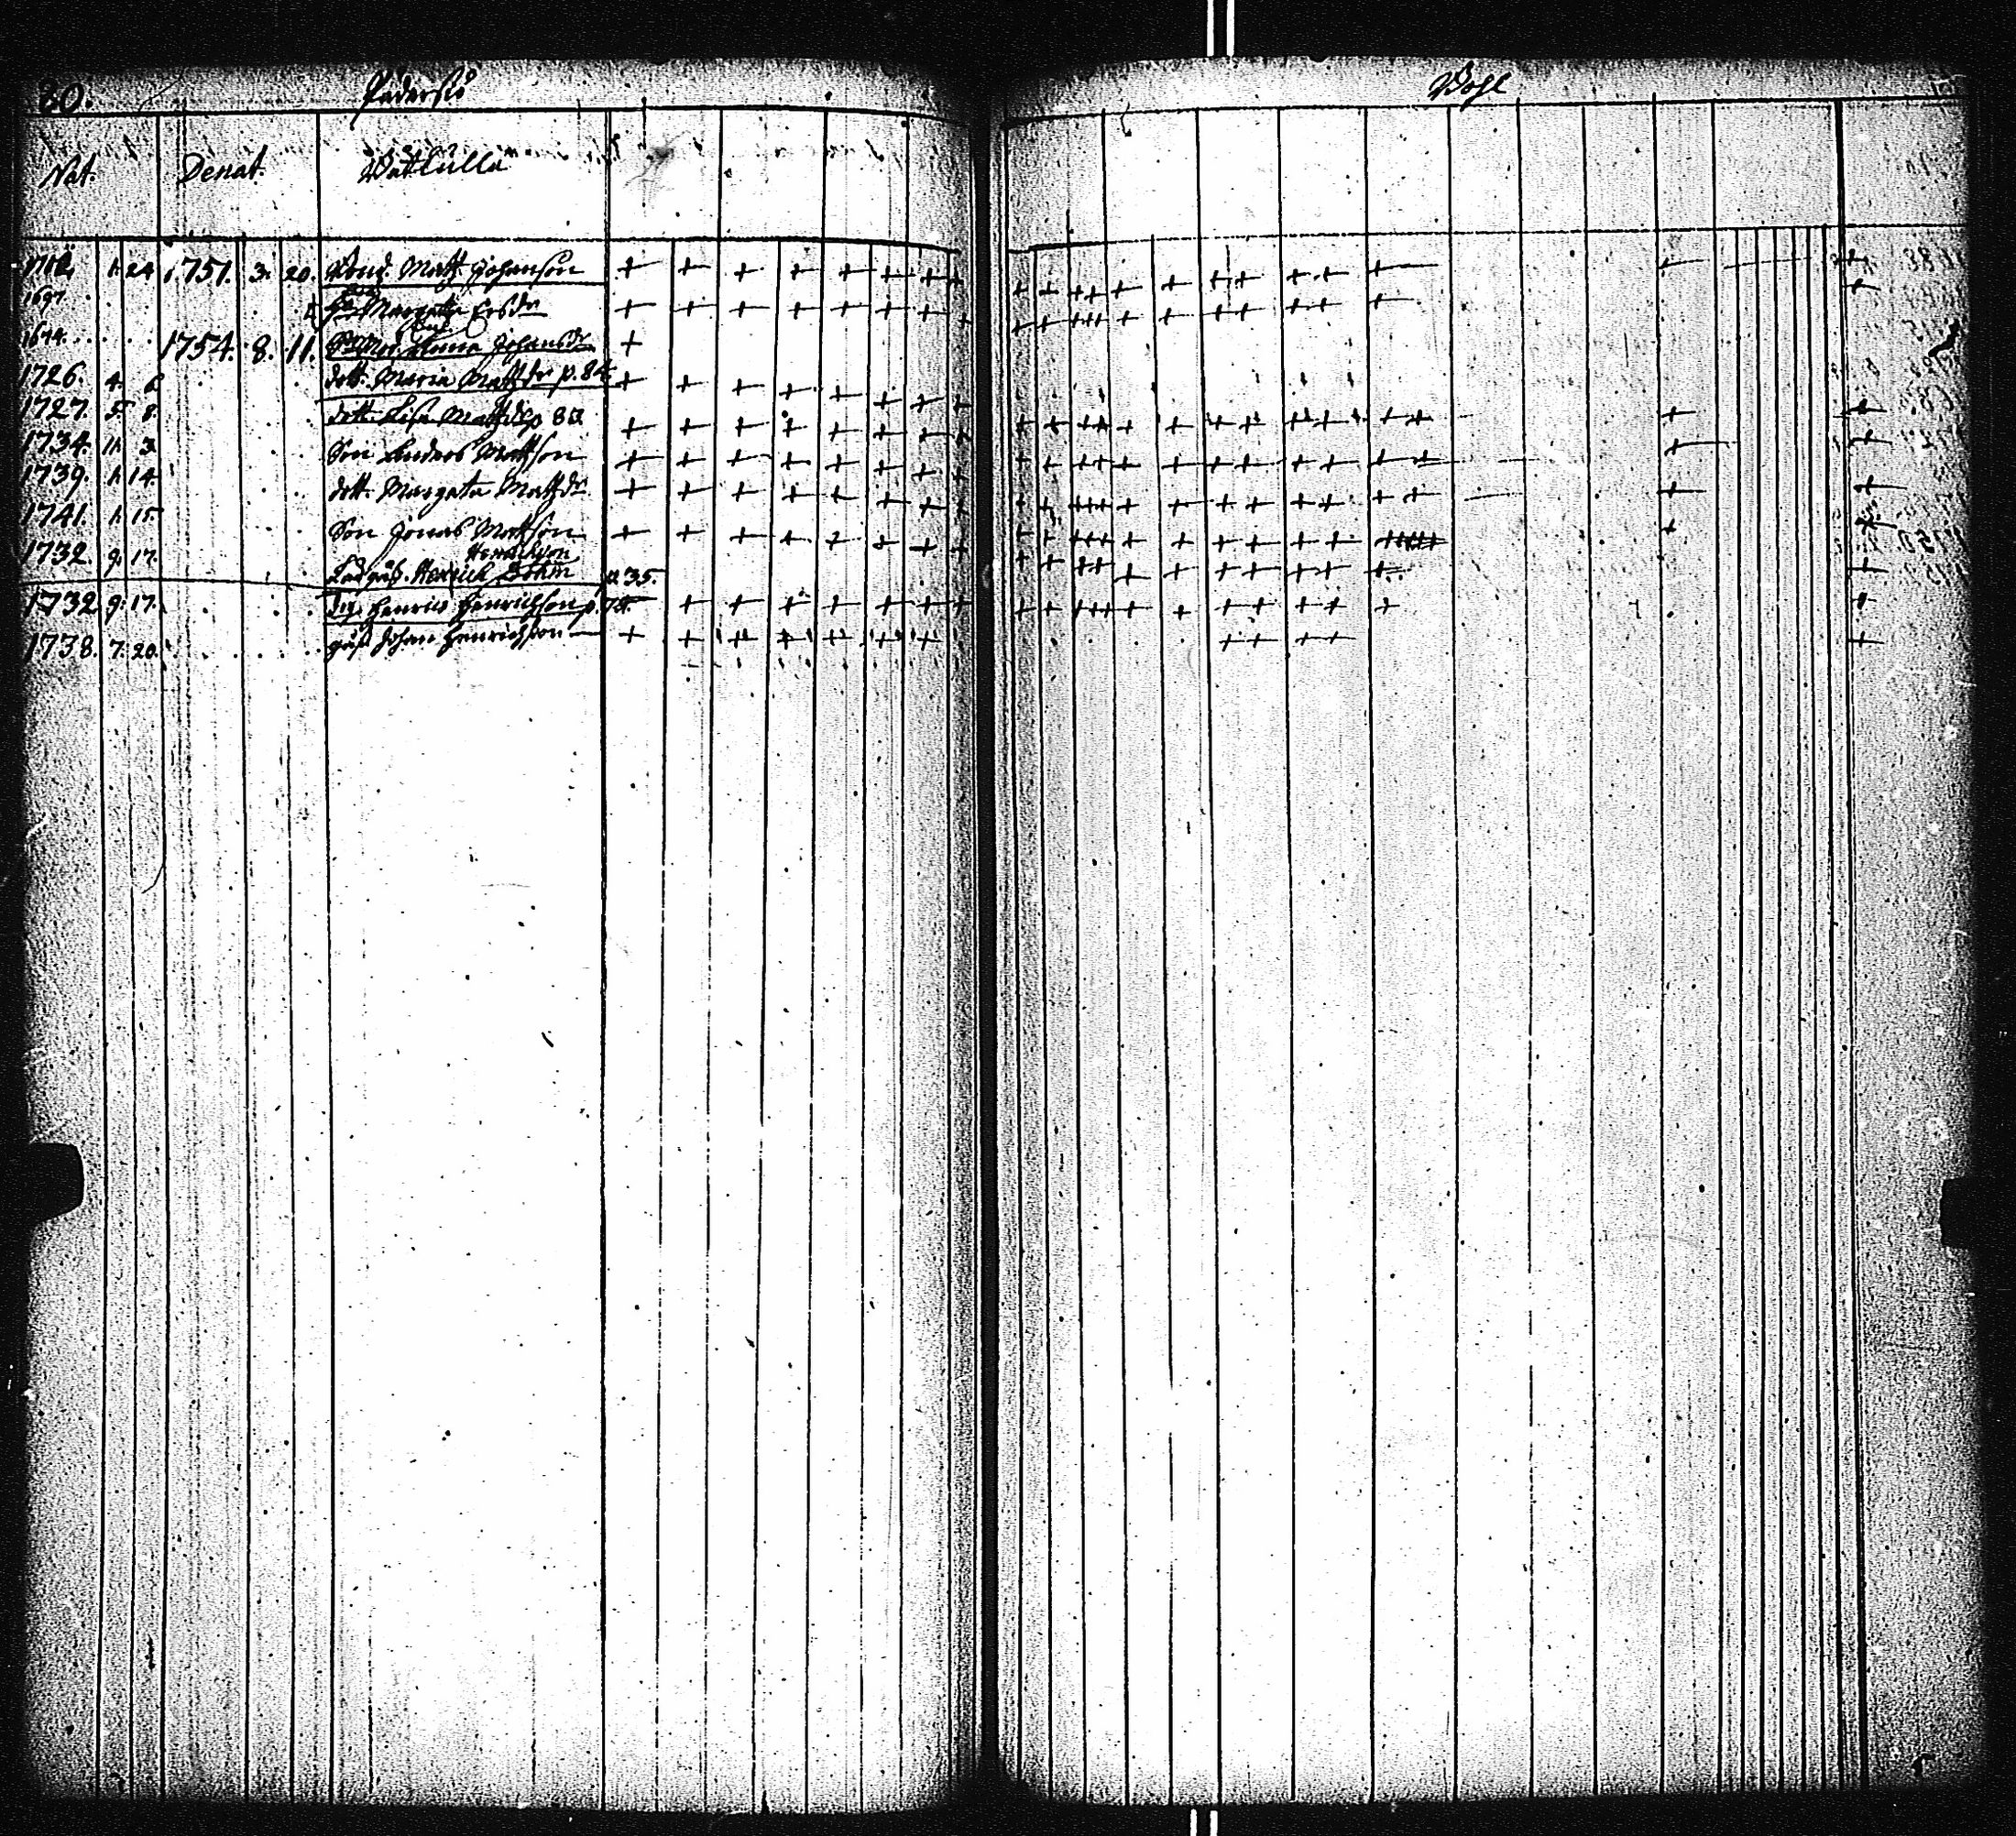 80. Pedersiö Wohl
Nat. Denat. Wätkulla
1712. 1. 24 1751. 3. 20. Bond. Matts Johanson
1697. Margeta Ersdr
1674. 1754. 8. 11. Anna Johansdr
1726. 4. 6. dott. Maria Mattsdr p. 84
1727. 5. 8. dott. Lisa Mattsdr p 82
1734. 11. 3. Son Anders Mattson
1739. 1. 14. dott. Margeta Mattsdr
1741. 1. 15. Son Jonas Mattson
Henrichson
1732. 9. 17. Henrich Böhm p 35.
1732. 9. 17. Dr. Henrich Henrichson p. 74.
1738. 7. 20. Johan Henrichson